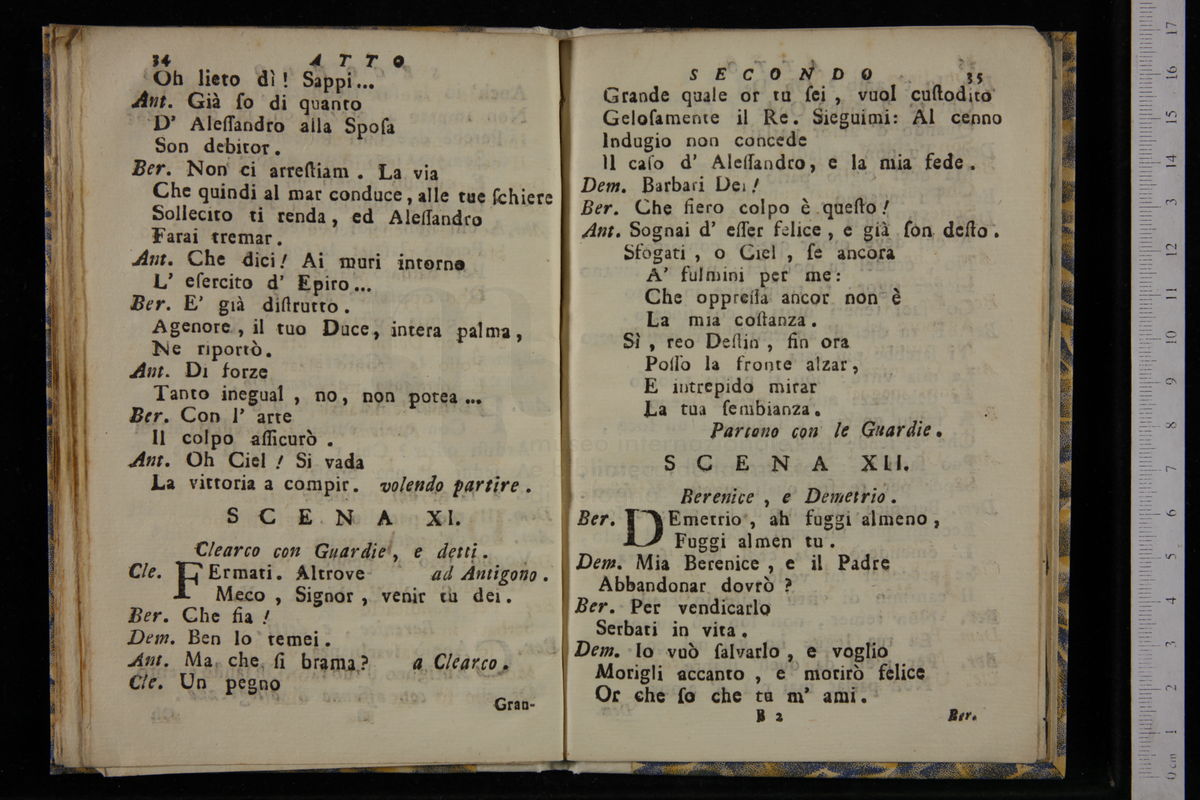 34 ATTO
Oh lieto dì! Sappi...
Ant. Già ſo di quanto
D' Aleſſandro alla Spoſa
Son debitor.
Ber. Non ci arreſtiam. La via
Che quindi al mar conduce, alle tue ſchiere
Sollecito ti renda, ed Aleſſandro
Farai tremar.
Ant. Che dici! Ai muri intorno
L' eſercito d' Epiro...
Ber. E' già diſtrutto.
Agenore, il tuo Duce, intera palma,
Ne riportò.
Ant. Di forze
Tanto inegual, no, non potea...
Ber. Con l' arte
Il colpo aſſicurò.
Ant. Oh Ciel! Si vada
La vittoria a compir. volendo partire.
SCENA XI.
Clearco con Guardie, e detti.
Cle. FErmati. Altrove ad Antigono.
Meco, Signor, venir tu dei.
Ber. Che fia!
Dem. Ben lo temei.
Ant. Ma che ſi brama? a Clearco.
Cle. Un pegno
Gran-
SECONDO 35
Grande quale or tu ſei, vuol cuſtodito
Geloſamente il Re. Sieguimi: Al cenno
Indugio non concede
Il caſo d' Aleſſandro, e la mia fede.
Dem. Barbari Dei!
Ber. Che fiero colpo è queſto!
Ant. Sognai d' eſſer felice, e già ſon deſto.
Sfogati, o Ciel, ſe ancora
A' fulmini per me:
Che oppreſſa ancor non è
La mia coſtanza.
Sì, reo Deſtin, fin ora
Poſſo la fronte alzar,
E intrepido mirar
La tua ſembianza.
Partono con le Guardie.
SCENA XII.
Berenice, e Demetrio.
Ber. DEmetrio, ah fuggi almeno,
Fuggi almen tu.
Dem. Mia Berenice, e il Padre
Abbandonar dovrò?
Ber. Per vendicarlo
Serbati in vita.
Dem. Io vuò ſalvarlo, e voglio
Morigli accanto, e morirò felice
Or che ſo che tu m' ami.
B 2 Ber.
17
16
15
14
13
12
11
10
9
8
7
6
5
4
3
2
1
0 cm